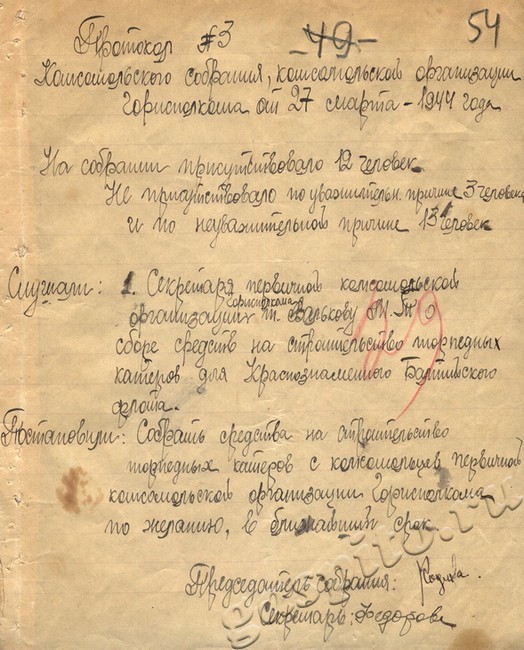 54
-49-
Протокол №3
Комсомольского собрания, комсомольской организации
Горисполкома от 27 марта - 1944 года
На собрании присутствовало 12 человек
Не присутствовало по уважительн. причине 3 человека
и по неуважительной причине 13 человек
Слушали: 1. Секретаря первичной комсомольской
горисполкома
организации т. Валькову М.Т о
сборе средств на строительство торпедных
катеров для Краснознаменного Балтийского
флота.
29
Постановили: Собрать средства на строительство
торпедных катеров с комсомольцев первичной
комсомольской организации Горисполкома
по желанию, в ближайший срок.
Председатель собрания:
Секретарь: Федорова